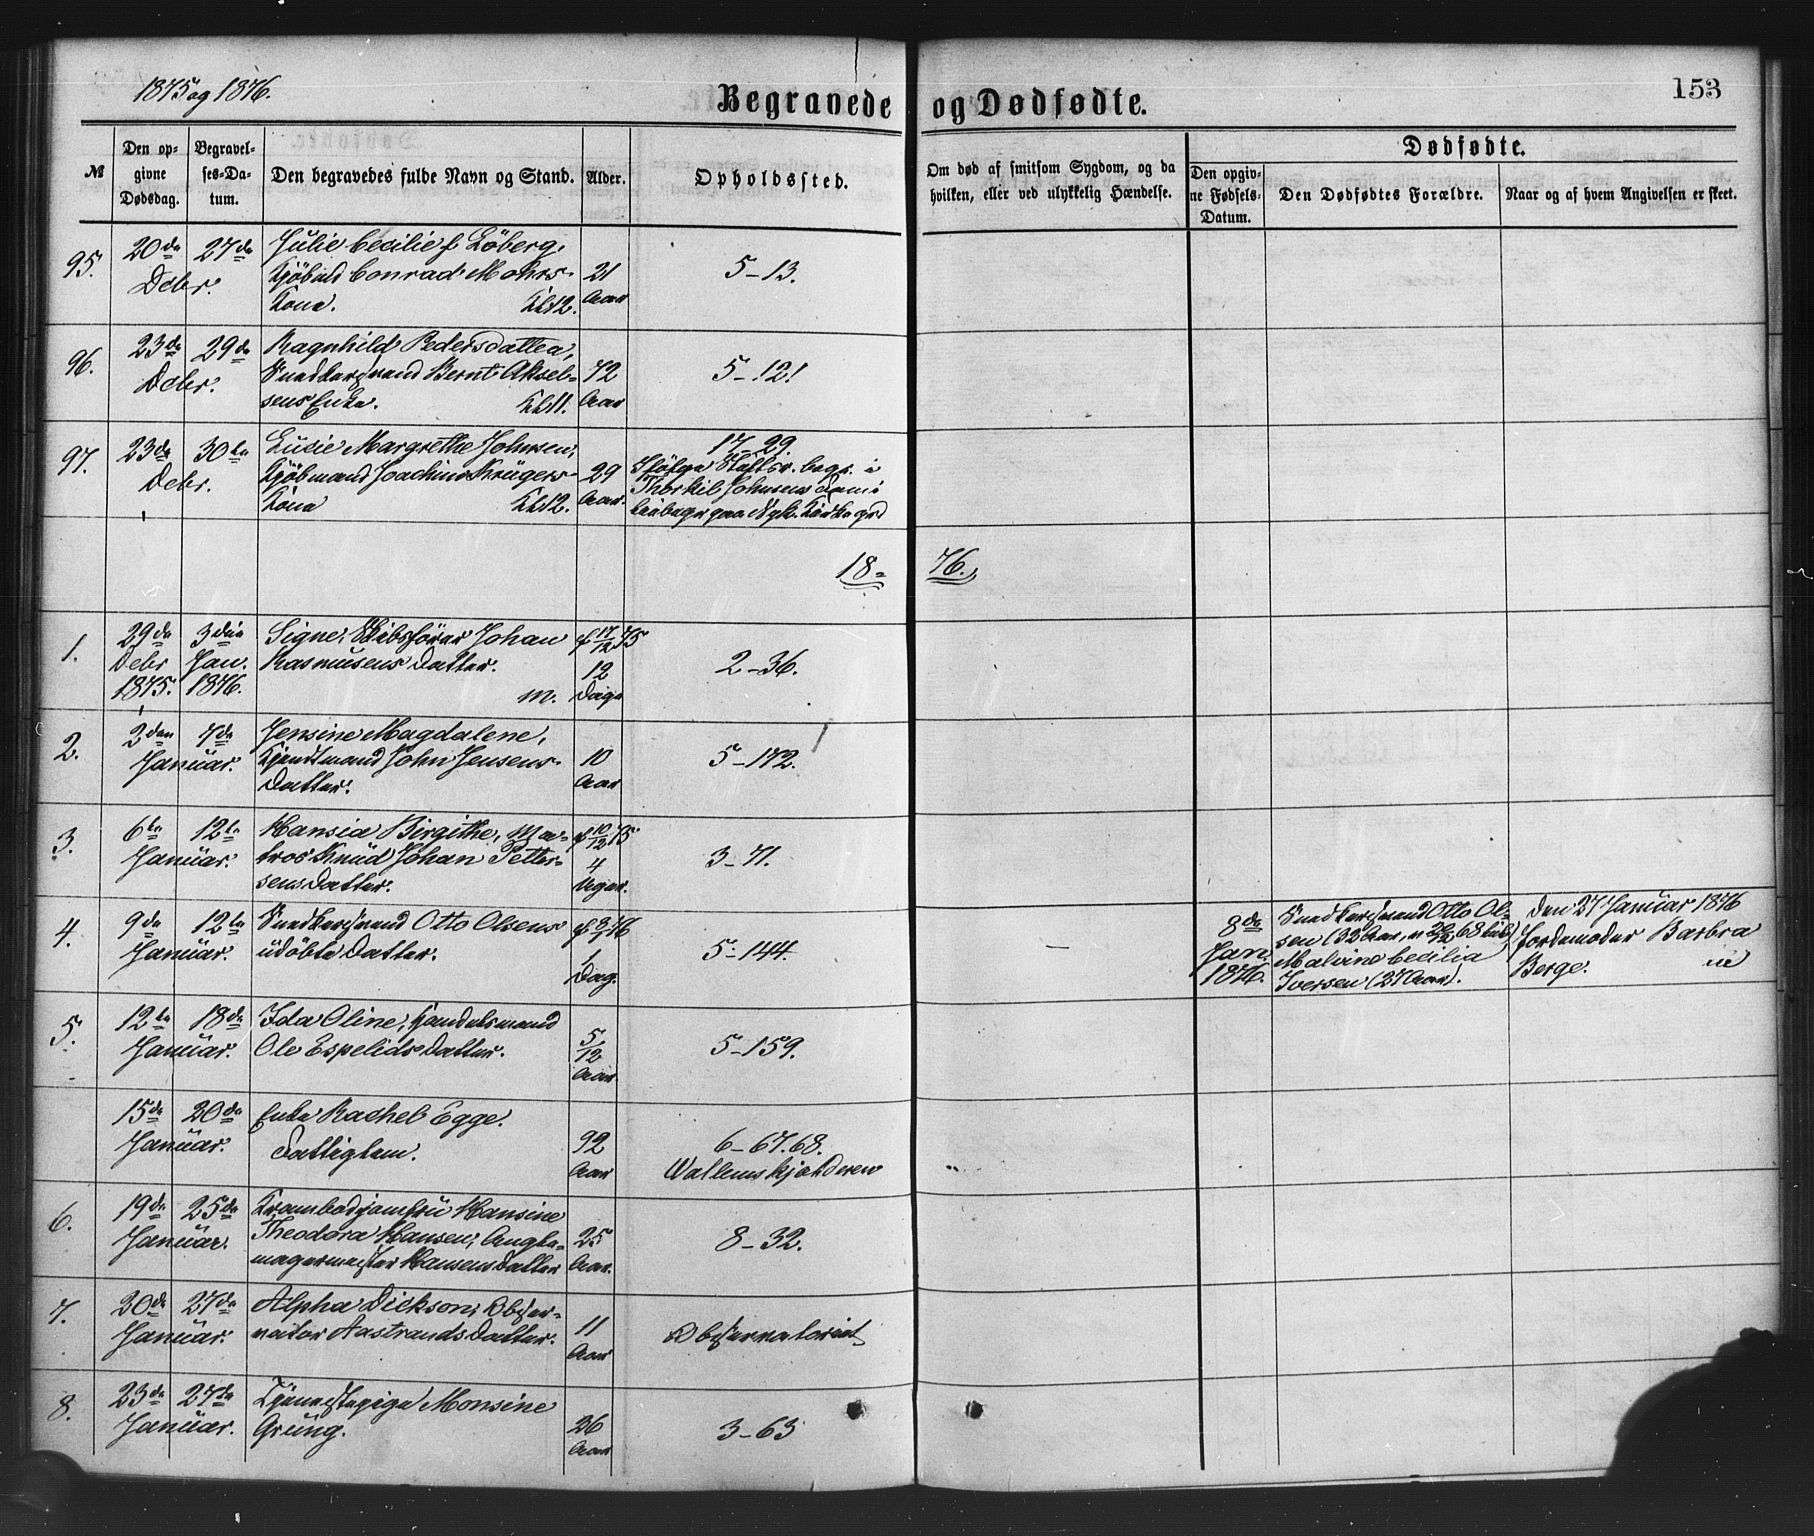 1875 og 1876.
Begravede og Dødfødte.
153
№
Den opgivne Dødsdag.
Begravelses-Datum.
Den begravedes fulde Navn og Stand.
Alder.
Opholdssted.
Om død af smitsom Sygdom, og da hvilken, eller ved ulykkelig Hændelse.
Dødfødte.
Den opgivne Fødsels-Datum.
Den Dødfødtes Forældre.
Naar og af hvem Angivelsen er skeet.
95. 20de 27de Julie Cecilie f. Löberg,
Debr. Conrad Mohrs 31 5-13.
Kone. Kl 12. Aar
96. 23de 29de Ragnhild Pedersdatter,
Debr. Bernt Aksel- 72 5-121
sens Enke. Kl 11. Aar
97. 23de 30te Lucie Margrethe Johnsen, 17-29.
Debr. Kjöbmand Joachim Krügers 29
Kone Kl 12. Aar. Thorkil Johnsens
18-76.
1. 29de 3die Signe, Skibsförer Johan f 17/12 75
Debr Jan. Rasmusens Datter. 12 2-36.
1875. 1876. m. Dage
2. 2den 7de Jensine Magdalene,
Januar. John Jensens 10 5-172.
Datter. Aar
3. 6te 12te Hansia Birgithe, Ma- f 10/12 75
Januar. tros Knud Johan Petter- 4 3-71.
sens Datter. Uger.
4. 9de 12te Otto Olsens f 8/1 76
Januar. udöbte Datter. 1 5-144.
Dag.
8de
Jan.
1876.
Otto Ol-
sen (32 Aar,
Malvine Cecilia
Iversen (27 Aar).
Den 27 Januar 1876
Jordemoder Barbra
Berge.
5. 12te 18de Ida Oline, Handelsmand
Januar. Ole Espelids Datter. 5/12 5-159.
Aar.
15de 20de Enke Rachel Egge.
Januar. Fattiglem. 92 6-67.68.
Aar Wallemskjelderen
6. 19de 25de Krambodjomfru Hansine
Januar. Theodora Hansen, 25 8-32.
magermester Hansens Datter Aar.
7. 20de 27de Alpha Dickson, Obser-
Januar. vator Aastrands Datter. 11 Observatoriet
Aar
8. 23de 27de Tjenestepige Monsine
Januar. Grung. 26 3-63
Aar